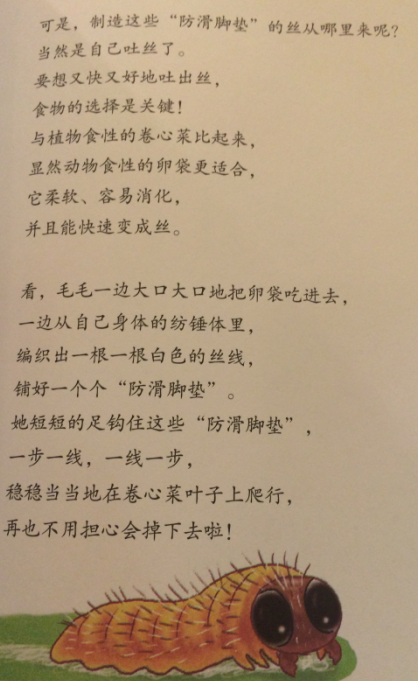 可是，制造这些“防滑脚垫”的丝从哪里来呢？
当然是自己吐丝了。
要想又快又好地吐出丝，
食物的选择是关键！
与植物食性的卷心菜比起来，
显然动物食性的卵袋更适合，
它柔软、容易消化，
并且能快速变成丝。
看，毛毛一边大口大口地把卵袋吃进去，
一边从自己身体的纺锤体里，
编织出一根一根白色的丝线，
铺好一个个“防滑脚垫”。
她短短的足钩住这些“防滑脚垫”，
一步一线，一线一步，
稳稳当当地在卷心菜叶子上爬行，
再也不用担心会掉下去啦！